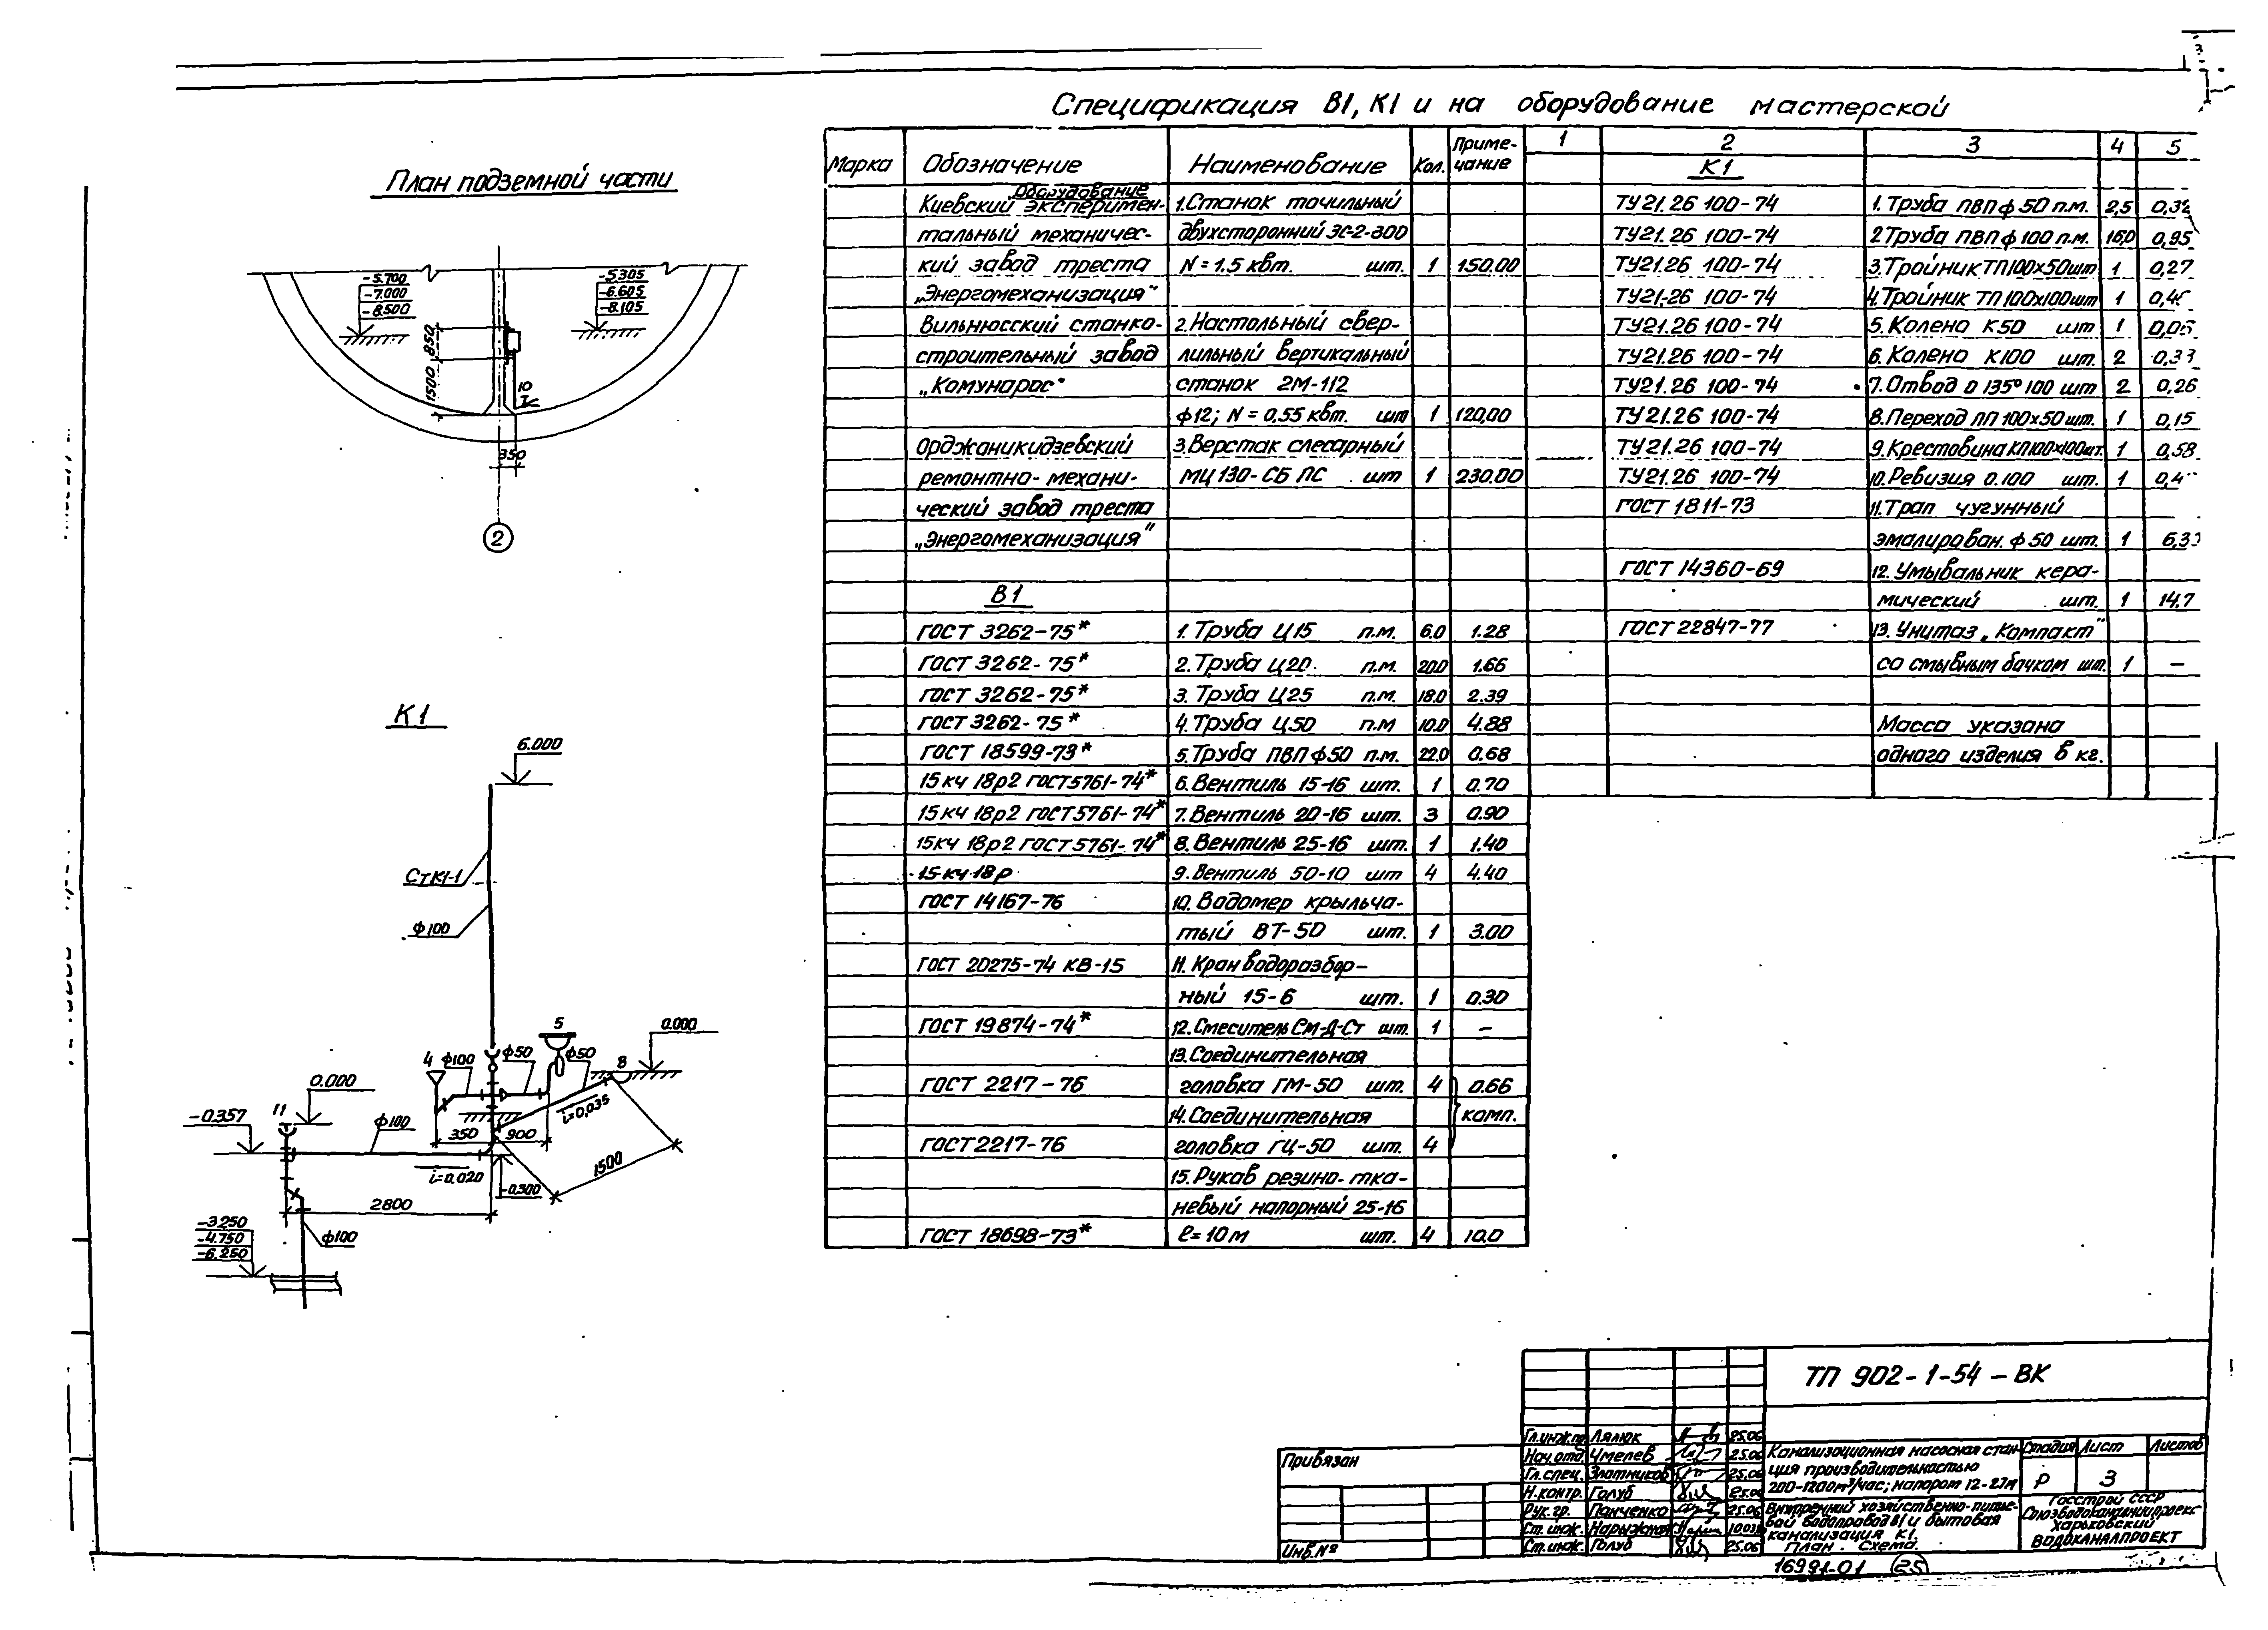 Спецификация В1, К1 и на оборудование мастерской
План подземной части
-5.700
-7.000
-8.500
-5.305
-6.605
-8.105
850
1500
10
350
2
К1
6.000
СтК1-1
ф100
5
0.000
4 ф100 ф50 ф50 8
0.000
-0.357
11
ф100
350 900
i=0.035
1500
i=0.020
-0.300
2800
-3.250
-4.750
-6.250
ф100
Марка Обозначение Наименование Кол. Приме-
чание
Оборудование
Киевский эксперимен- 1.Станок точильный
тальный механичес- двухсторонний ЗС-2-300
кий завод треста N=1.5 квт. шт. 1 150.00
„Энергомеханизация"
Вильнюсский станко- 2.Настольный свер-
строительный завод лильный вертикальный
„Комунарос" станок 2М-112
ф12; N=0,55 квт. шт 1 120,00
Орджаникидзевский 3.Верстак слесарный
ремонтно-механи- МЦ 130-СБ ПС шт 1 230.00
ческий завод треста
„Энергомеханизация"
В1
ГОСТ 3262-75* 1. Труба Ц15 п.м. 6.0 1.28
ГОСТ 3262-75* 2. Труба Ц20 п.м. 20.0 1.66
ГОСТ 3262-75* 3. Труба Ц25 п.м. 18.0 2.39
ГОСТ 3262-75* 4. Труба Ц50 п.м 10.0 4.88
ГОСТ 18599-73* 5. Труба ПВП ф50 п.м. 22.0 0.68
15кч 18р2 ГОСТ5761-74* 6. Вентиль 15-16 шт. 1 0.70
15кч 18р2 ГОСТ5761-74* 7. Вентиль 20-16 шт. 3 0.90
15кч 18р2 ГОСТ5761-74* 8. Вентиль 25-16 шт. 1 1.40
15кч 18р 9. Вентиль 50-10 шт 4 4.40
ГОСТ 14167-76 10. Водомер крыльча-
тый ВТ-50 шт. 1 3.00
ГОСТ 20275-74 КВ-15 11. Кран водоразбор-
ный 15-6 шт. 1 0.30
ГОСТ 19874-74* 12. Смеситель См-Д-Ст шт. 1 –
13. Соединительная
ГОСТ 2217-76 головка ГМ-50 шт. 4 0.66
14. Соединительная комп.
ГОСТ 2217-76 головка ГЦ-50 шт. 4
15. Рукав резино-тка-
невый напорный 25-16
ГОСТ 18698-73* ℓ=10м шт. 4 10.0
1 2 3 4 5
К1
ТУ21.26 100-74 1. Труба ПВП ф 50 п.м. 2,5
ТУ21.26 100-74 2 Труба ПВП ф 100 п.м. 16.0 0,95
ТУ21.26 100-74 3. Тройник ТП100х50 шт 1 0,27
ТУ21.26 100-74 4. Тройник ТП 100х100 шт 1
ТУ21.26 100-74 5. Колено К50 шт 1
ТУ21.26 100-74 6. Колено К100 шт. 2 0,33
ТУ21.26 100-74 7. Отвод О 135° 100 шт 2 0,26
ТУ21.26 100-74 8. Переход ПП 100х50 шт. 1 0,15
ТУ21.26 100-74 9. Крестовина КП100х100 шт. 1 0,58
ТУ21.26 100-74 10. Ревизия О.100 шт. 1
ГОСТ 1811-73 11. Трап чугунный
эмалирован. ф 50 шт. 1
ГОСТ 14360-69 12. Умывальник кера-
мический шт. 1 14.7
ГОСТ 22847-77 13. Унитаз „Компакт"
со смывным бачком шт. 1 –
Масса указана
одного изделия в кг.
ТП 902-1-54-ВК
Привязан
Инв.№
Гл.инж.пр. Лялюк 25.06
Нач.отд. Чмелев 25.06
Гл.спец. Златников 25.06
Н.контр. Голуб 25.06
Рук.гр. Панченко 25.06
Ст.инж. Нарыжная
Ст.инж. Голуб 25.06
Канализационная насосная стан-
ция производительностью
200-1200м³/час; напором 12-27м
Внутренний хозяйственно-питье-
вой водопровод В1 и бытовая
канализация К1.
План. Схема.
Стадия Лист Листов
Р 3
Госстрой СССР
Союзводоканалниипроект
Харьковский
ВОДОКАНАЛПРОЕКТ
16991-01 25